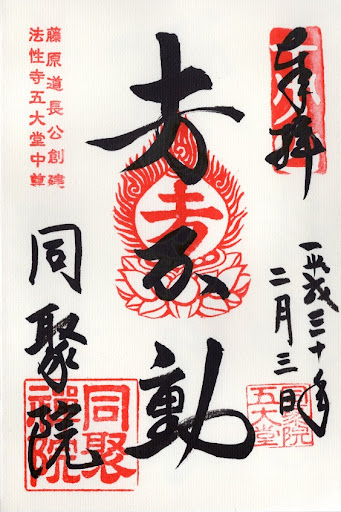 奉拝
平成三十年
二月三日
不動
藤原道長公創建
法性寺五大堂中尊
同聚院
同聚
禪院
五大堂